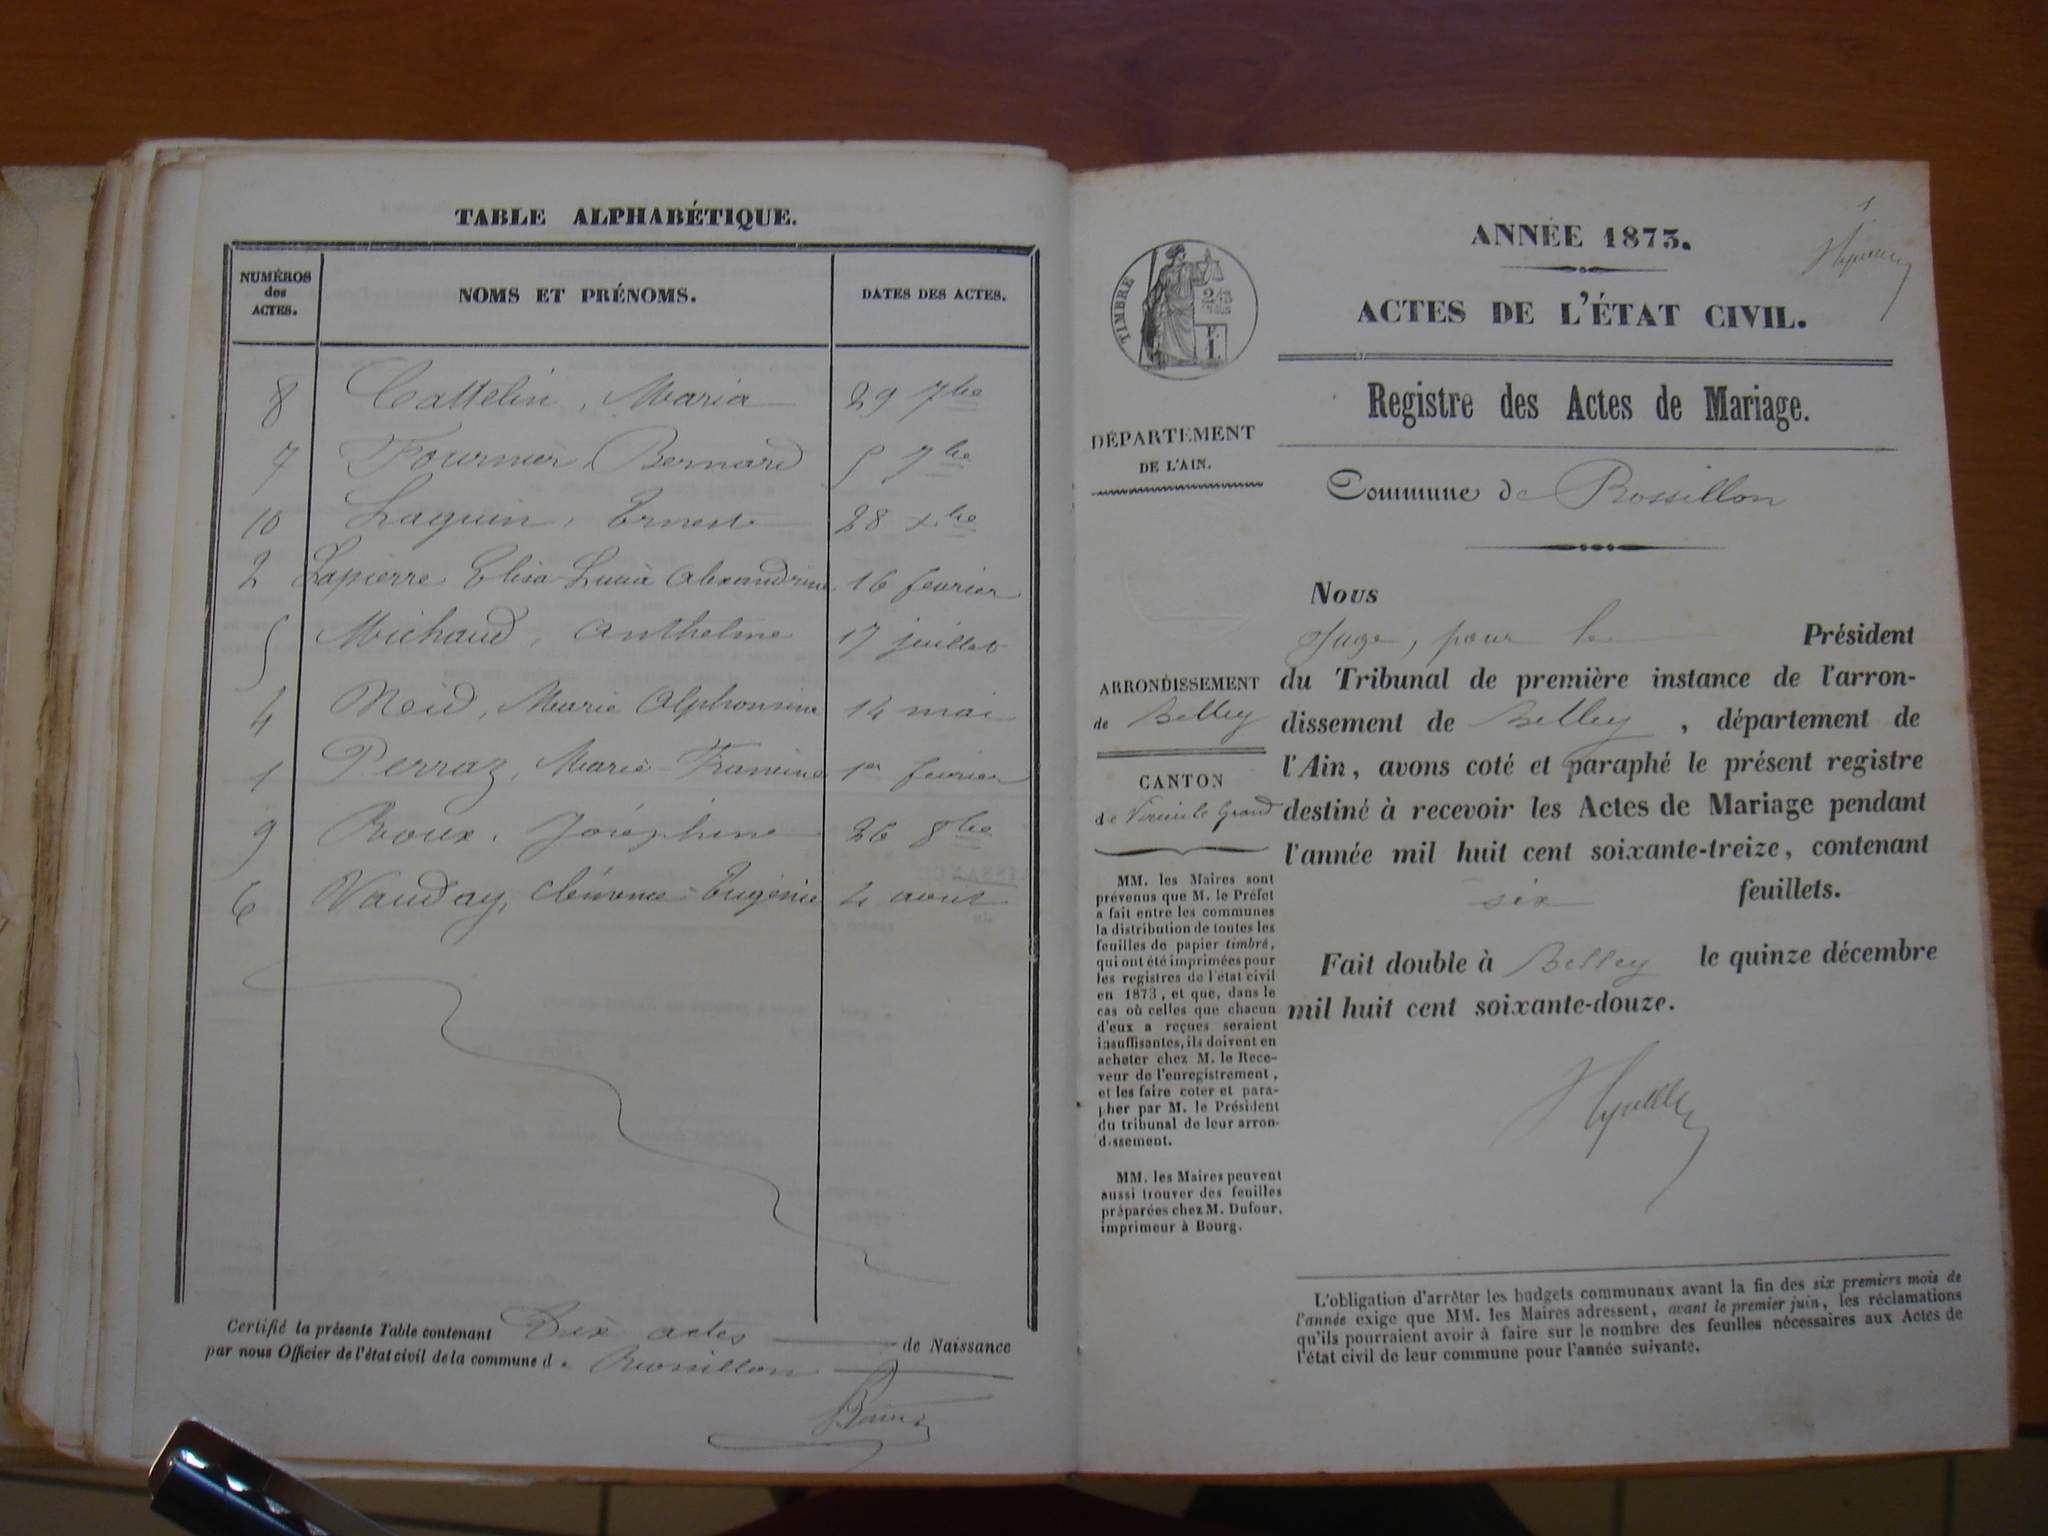 TABLE ALPHABÉTIQUE.
NUMÉROS des ACTES.
NOMS ET PRÉNOMS.
DATES DES ACTES.
8 Cattelin, Maria 29 7bre
7 Fournier, Bernard 5 7bre
10 Laguin, Ernest 28 xbre
2 Lapierre Elisa Lucie Alexandrine 16 fevrier
5 Michaud, Anthelme 17 juillet
4 Neid, Marie Alphonsine 14 mai
1 Perraz, Marie-Francine 1er fevrier
9 Roux, Joséphine 26 8bre
6 Vauday, Clémence-Eugénie 4 aout
Certifié la présente Table contenant Dix actes de Naissance
par nous Officier de l'état civil de la commune de Rossillon
1
ANNÉE 1873.
ACTES DE L'ÉTAT CIVIL.
TIMBRE
Registre des Actes de Mariage.
DÉPARTEMENT
DE L'AIN.
Commune de Rossillon
ARRONDISSEMENT
de Belley
CANTON
de Virieu le Grand
MM. les Maires sont
prévenus que M. le Préfet
a fait entre les communes
la distribution de toutes les
feuilles de papier timbré,
qui ont été imprimées pour
les registres de l'état civil
en 1873, et que, dans le
cas où celles que chacun
d'eux a reçues seraient
insuffisantes, ils doivent en
acheter chez M. le Rece-
veur de l'enregistrement,
et les faire coter et para-
pher par M. le Président
du tribunal de leur arron-
dissement.
MM. les Maires peuvent
aussi trouver des feuilles
préparées chez M. Dufour,
imprimeur à Bourg.
Nous
Juge, pour le Président
du Tribunal de première instance de l'arron-
dissement de Belley, département de
l'Ain, avons coté et paraphé le présent registre
destiné à recevoir les Actes de Mariage pendant
l'année mil huit cent soixante-treize, contenant
six feuillets.
Fait double à Belley le quinze décembre
mil huit cent soixante-douze.
L'obligation d'arrêter les budgets communaux avant la fin des six premiers mois de
l'année exige que MM. les Maires adressent, avant le premier juin, les réclamations
qu'ils pourraient avoir à faire sur le nombre des feuilles nécessaires aux Actes de
l'état civil de leur commune pour l'année suivante.